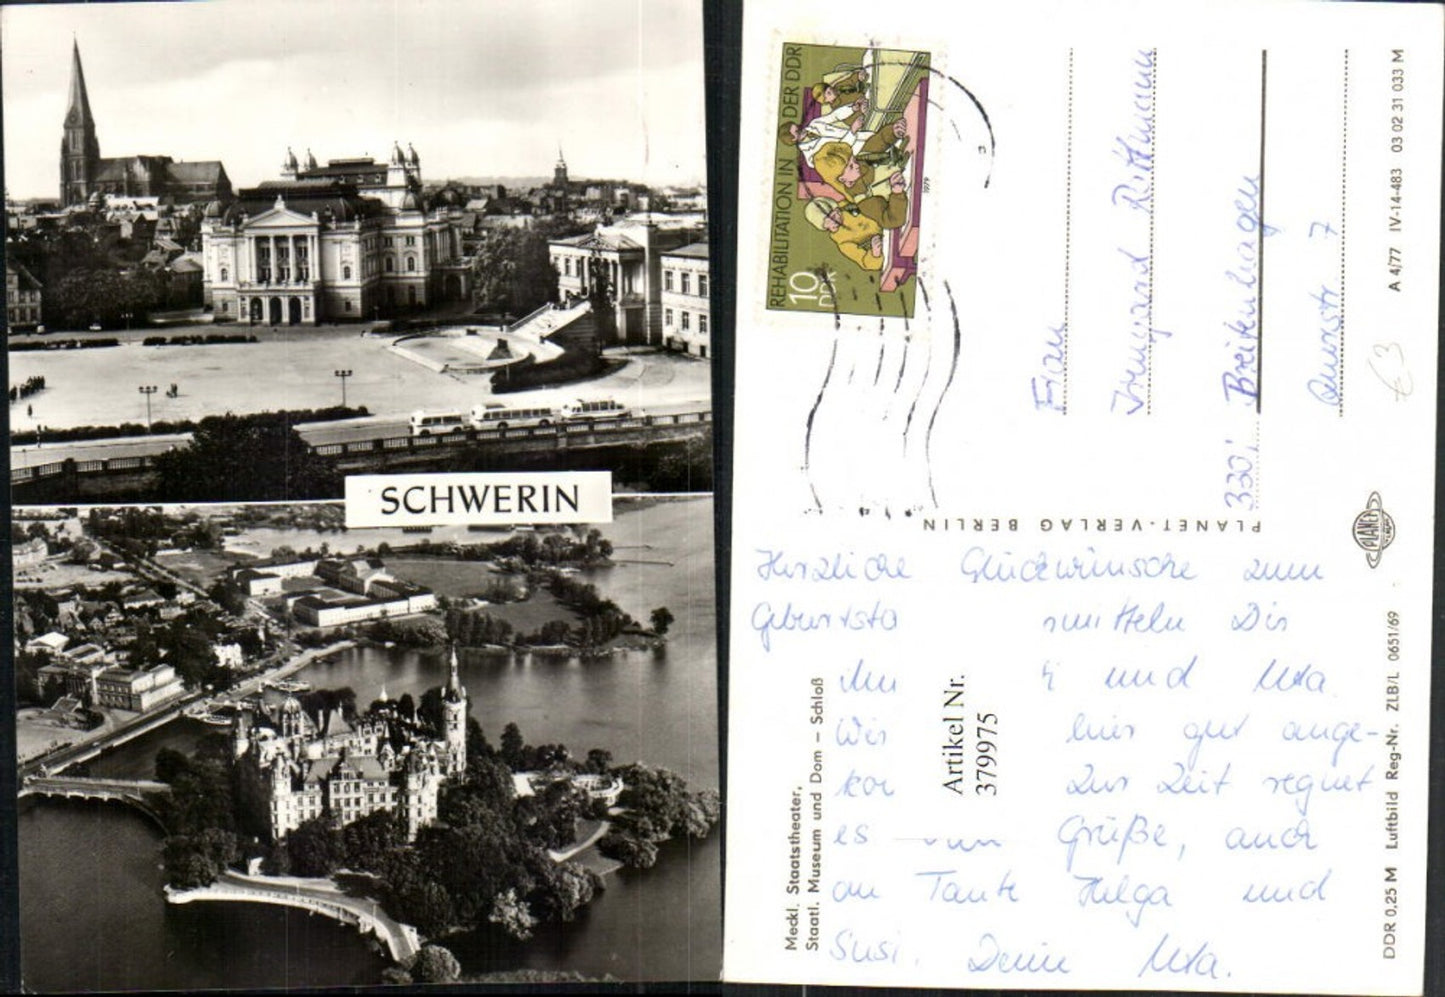 SCHWERIN
REHABILITATION IN DER DDR
10
DDR
1979
Frau
Irmgard Rottmann
3301 Breitenhagen
7
PLANET-VERLAG BERLIN
PLANET
A 4/77 IV-14-483 03 02 31 033 M
€3
Herzliche Glückwünsche zum
Geburtsta mitteln Dir
und Uta.
Wir hier gut ange-
kor Zur Zeit regnet
es Grüße, auch
an Tante Helga und
Susi. Deine Uta.
Artikel Nr.
379975
Meckl. Staatstheater,
Staatl. Museum und Dom – Schloß
DDR 0,25 M Luftbild Reg-Nr. ZLB/L 0651/69